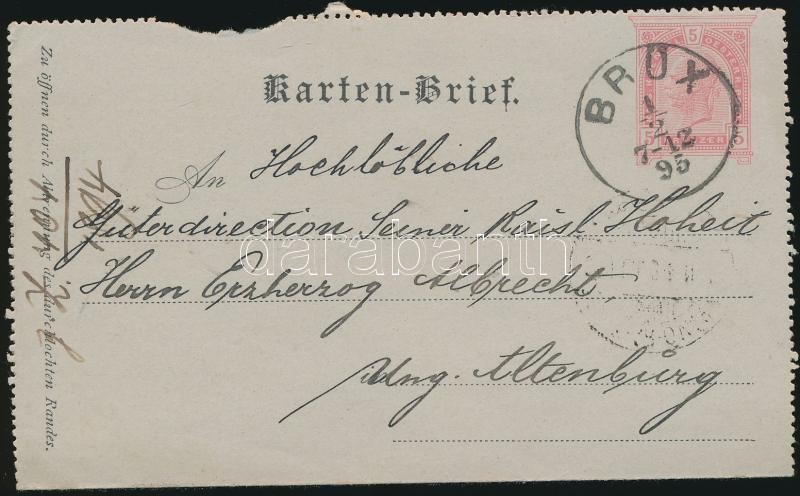 Karten-Brief.
An Hochlöbliche
Güterdirection Seiner Kaisl. Hoheit
Herrn Erzherzog Albrecht
Ung. Altenburg
Zu öffnen durch Abtrennung des durchlochten Randes.
BRÜX
1/2
7-12
95
5
5
5
darabanth